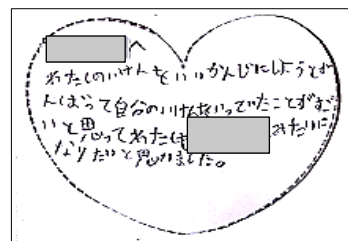 へ
わたしのいけんをいいかんじにしようとが
んばって自分のいけんをいっていたことがすご
いと思ってわたしは みたいに
なりたいと思いました。